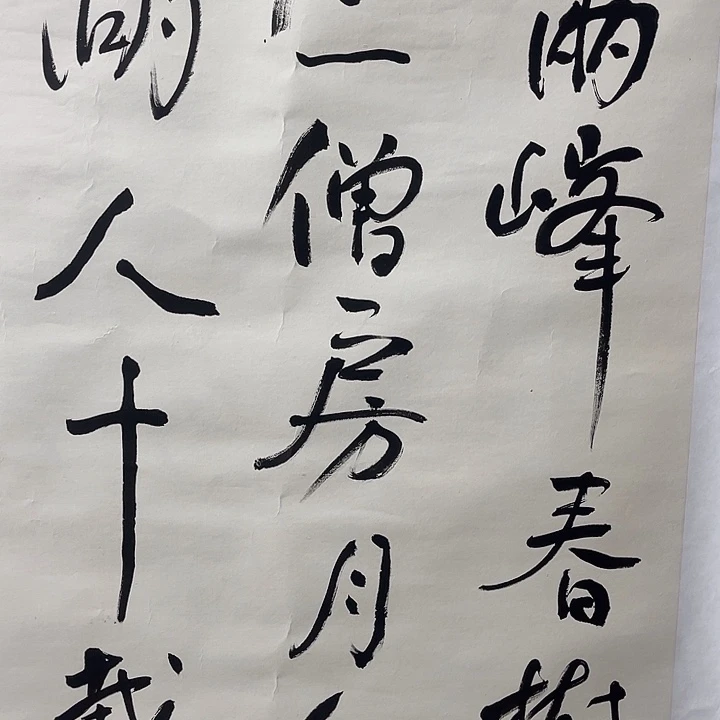 兩峰春樹
僧房月
湖人十載